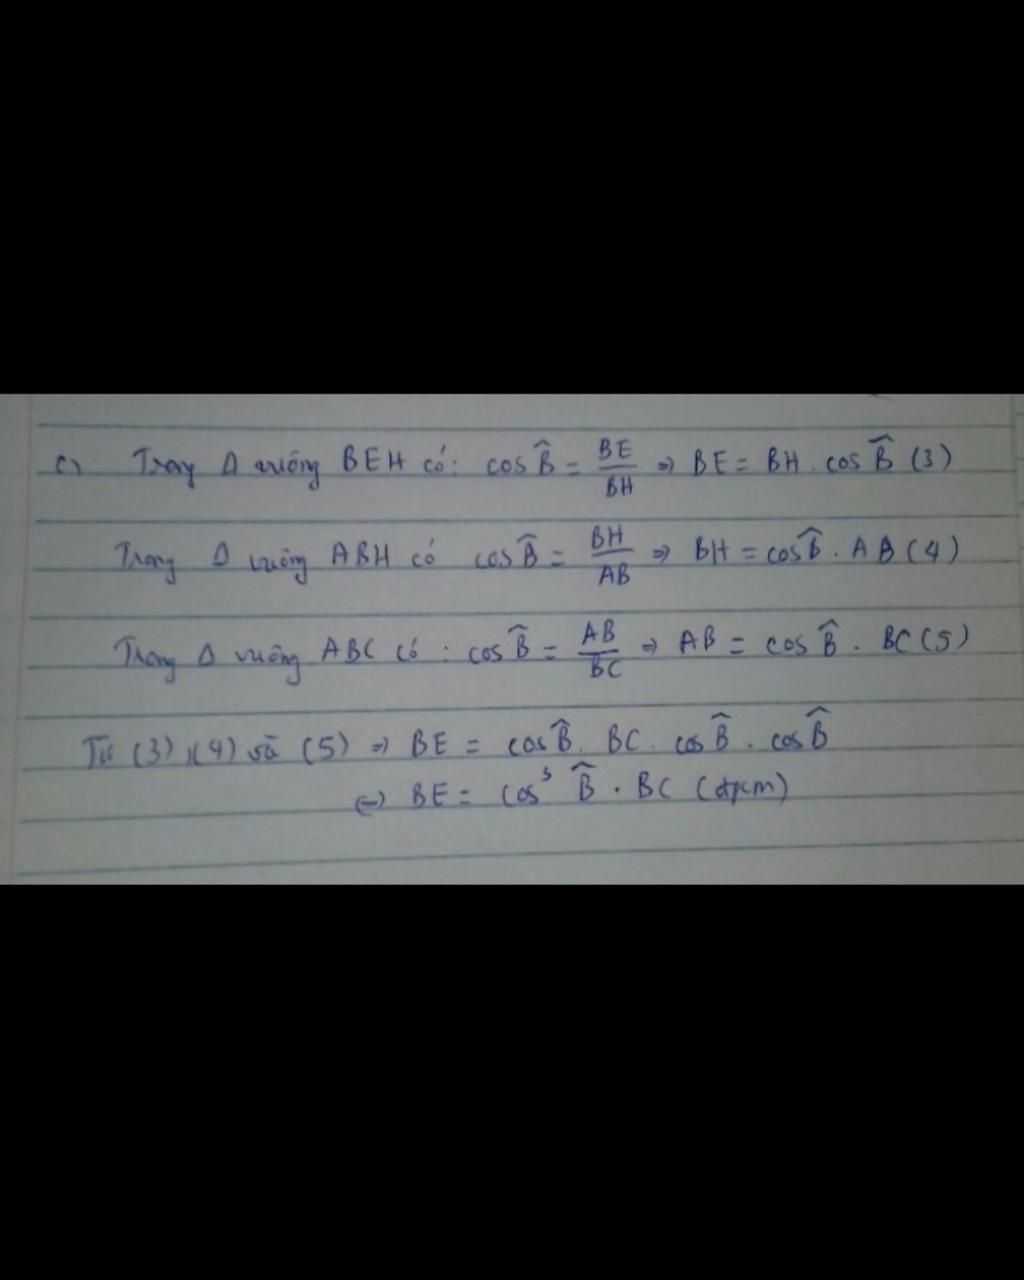 c) Trong Δ vuông BEH có: cos B̂ = BE/BH ⇒ BE = BH . cos B̂ (3)
Trong Δ vuông ABH có cos B̂ = BH/AB ⇒ BH = cos B̂ . AB (4)
Trong Δ vuông ABC có : cos B̂ = AB/BC ⇒ AB = cos B̂ . BC (5)
Từ (3), (4) và (5) ⇒ BE = cos B̂ . BC . cos B̂ . cos B̂
⇔ BE = cos³ B̂ . BC (đpcm)